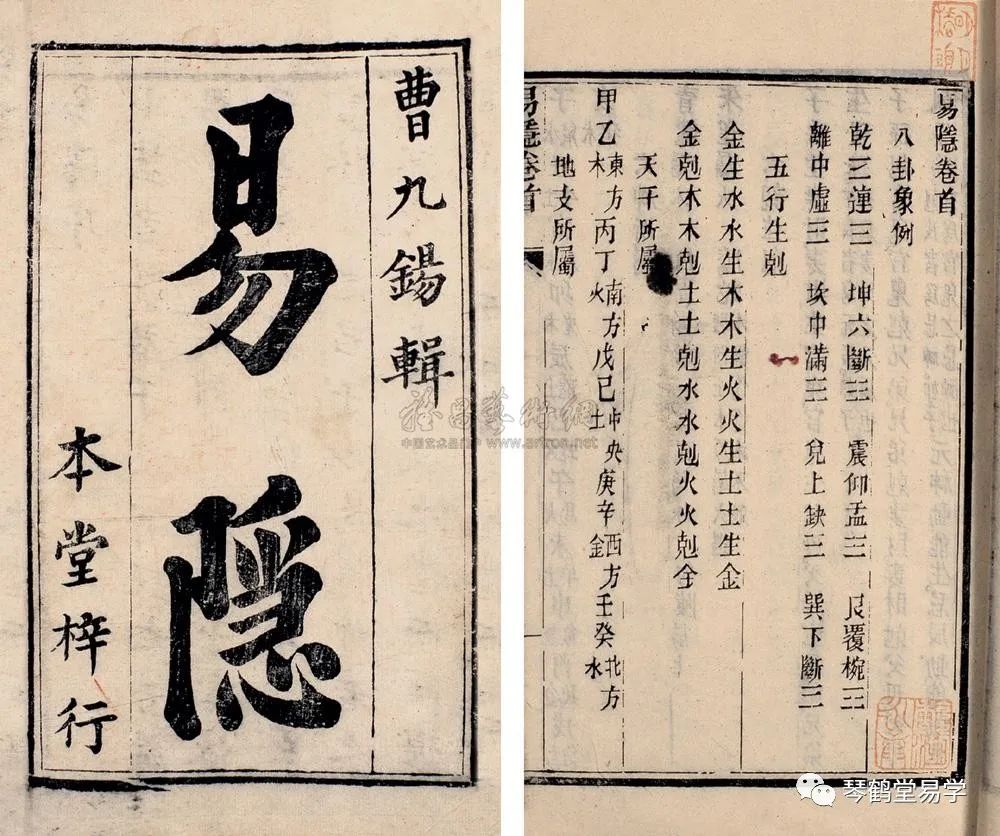 曹九錫輯
易隱
本堂梓行
易隱卷首
八卦象例
乾三連☰ 坤六斷☷ 震仰盂☳ 艮覆椀☶
離中虛☲ 坎中滿☵ 兌上缺☱ 巽下斷☴
五行生剋
金生水水生木木生火火生土土生金
金剋木木剋土土剋水水剋火火剋金
天干所屬
甲乙東方木丙丁南方火戊己中央土庚辛西方金壬癸北方水
地支所屬
易隱卷首
www.artron.net
琴鹤堂易学